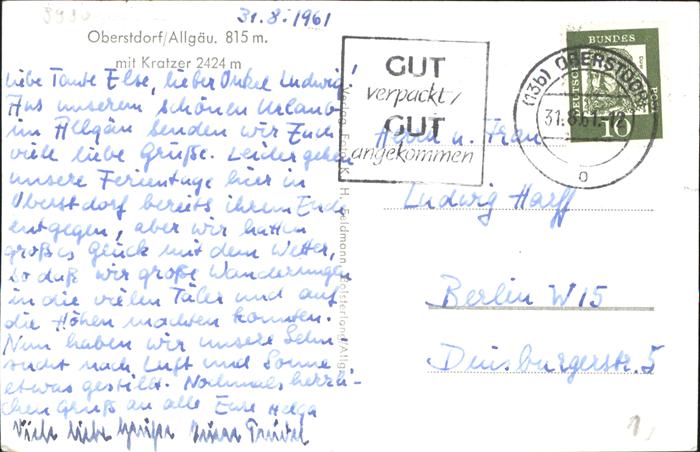 31.8.1961
Oberstdorf/Allgäu. 815 m.
mit Kratzer 2424 m
Liebe Tante Else, lieber Onkel Ludwig!
Aus unserem schönen Urlaub
im Allgäu senden wir Euch
viele liebe Grüße. Leider gehen
unsere Ferientage hier in
Oberstdorf bereits ihrem Ende
entgegen, aber wir hatten
großes Glück mit dem Wetter,
so daß wir große Wanderungen
in die vielen Täler und auf
die Höhen machen konnten.
Nun haben wir unsere Sehn-
sucht nach Luft und Sonne
etwas gestillt. Nochmals herzli-
chen Gruß an alle Eure Helga
Viele liebe Grüße Eure Trudel
GUT
verpackt/
GUT
angekommen
(13b) OBERSTDORF
31.8.61.-12
DEUTSCHE BUNDESPOST
10
Herrn u. Frau
Ludwig Harff
Berlin W 15
Duisburgerstr. 5